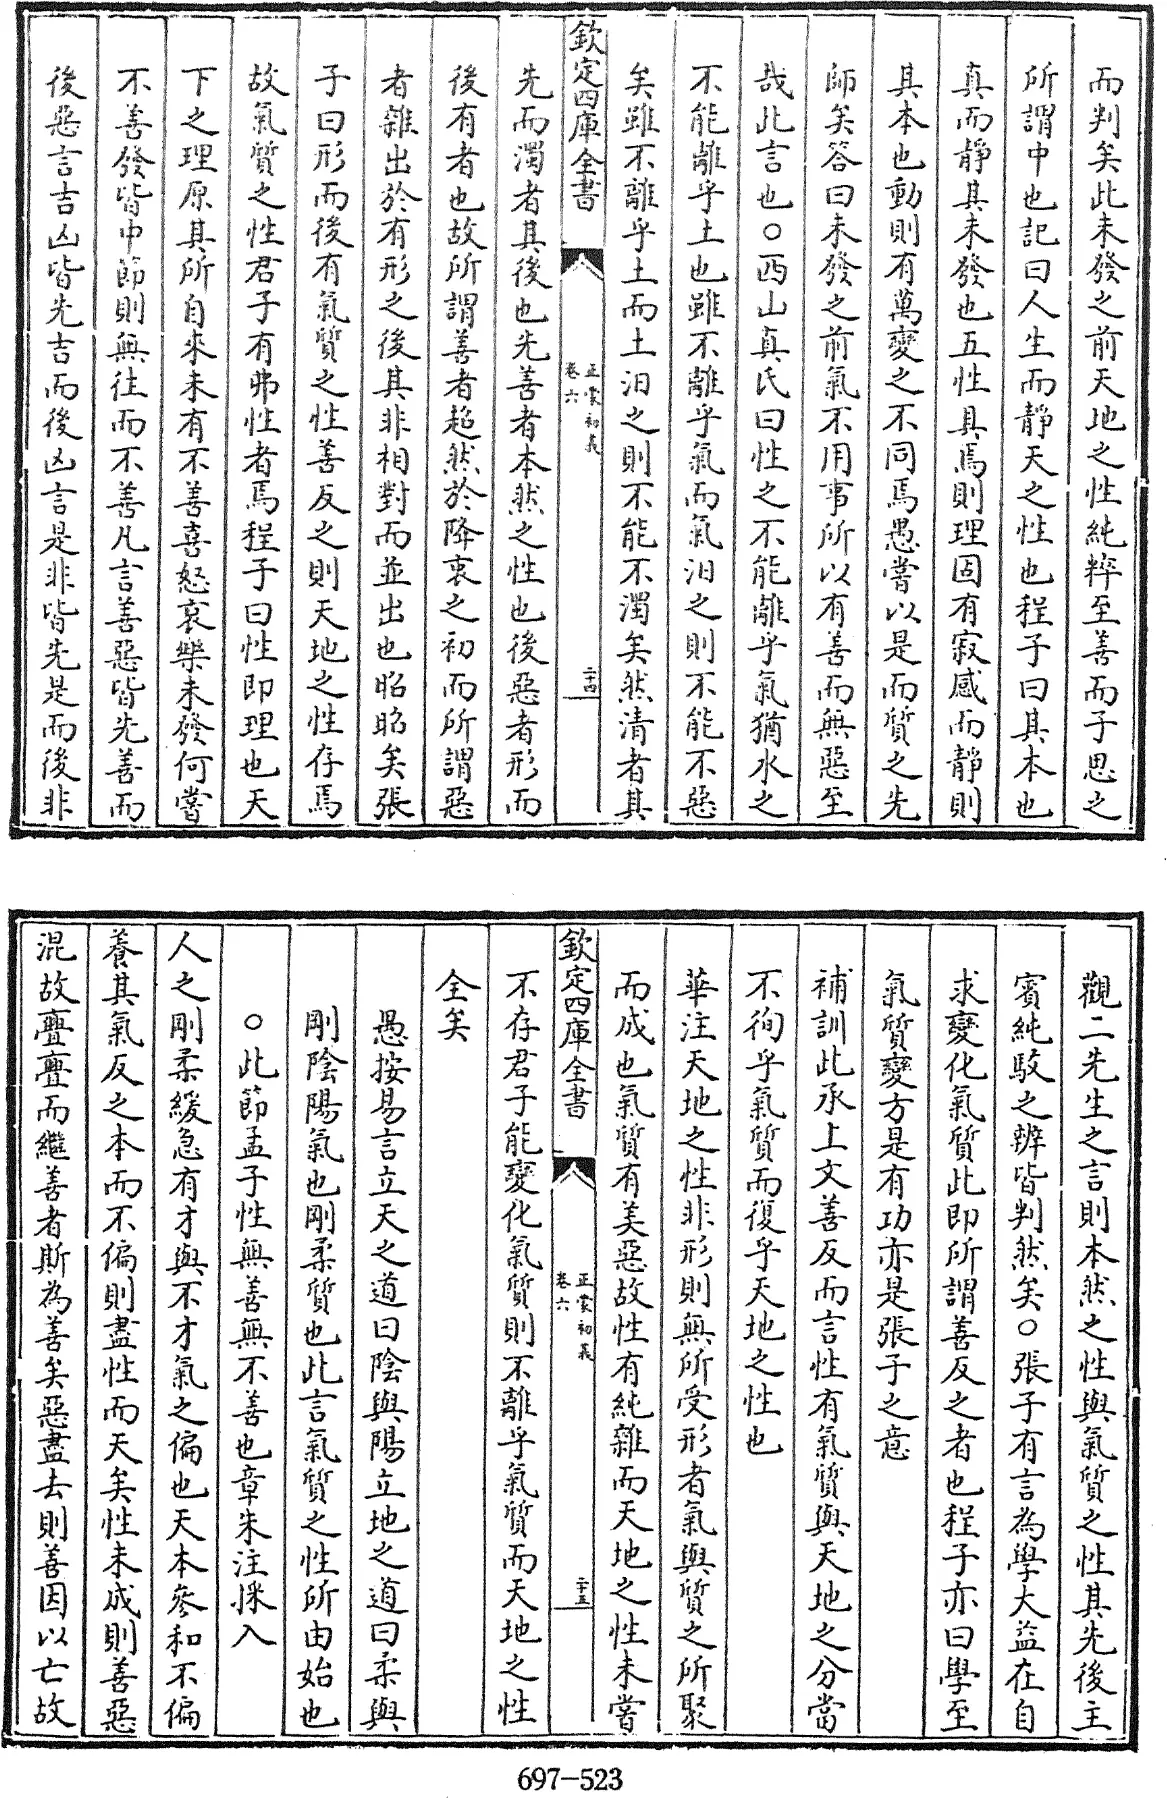 而判矣此未發之前天地之性純粹至善而子思之
所謂中也記曰人生而靜天之性也程子曰其本也
真而靜其未發也五性具焉則理固有寂感而靜則
其本也動則有萬變之不同焉愚嘗以是而質之先
師矣答曰未發之前氣不用事所以有善而無惡至
哉此言也○西山真氏曰性之不能離乎氣猶水之
不能離乎土也雖不離乎氣而氣汩之則不能不惡
矣雖不離乎土而土汩之則不能不濁矣然清者其
欽定四庫全書
正蒙初義
卷六
二十四
先而濁者其後也先善者本然之性也後惡者形而
後有者也故所謂善者超然於降衷之初而所謂惡
者雜出於有形之後其非相對而並出也昭昭矣張
子曰形而後有氣質之性善反之則天地之性存焉
故氣質之性君子有弗性者焉程子曰性即理也天
下之理原其所自來未有不善喜怒哀樂未發何嘗
不善發皆中節則無往而不善凡言善惡皆先善而
後惡言吉凶皆先吉而後凶言是非皆先是而後非
觀二先生之言則本然之性與氣質之性其先後主
賓純駁之辨皆判然矣○張子有言為學大益在自
求變化氣質此即所謂善反之者也程子亦曰學至
氣質變方是有功亦是張子之意
補訓此承上文善反而言性有氣質與天地之分當
不徇乎氣質而復乎天地之性也
華注天地之性非形則無所受形者氣與質之所聚
而成也氣質有美惡故性有純雜而天地之性未嘗
欽定四庫全書
正蒙初義
卷六
二十五
不存君子能變化氣質則不離乎氣質而天地之性
全矣
愚按易言立天之道曰陰與陽立地之道曰柔與
剛陰陽氣也剛柔質也此言氣質之性所由始也
○此節孟子性無善無不善也章朱注採入
人之剛柔緩急有才與不才氣之偏也天本參和不偏
養其氣反之本而不偏則盡性而天矣性未成則善惡
混故亹亹而繼善者斯為善矣惡盡去則善因以亡故
697-523